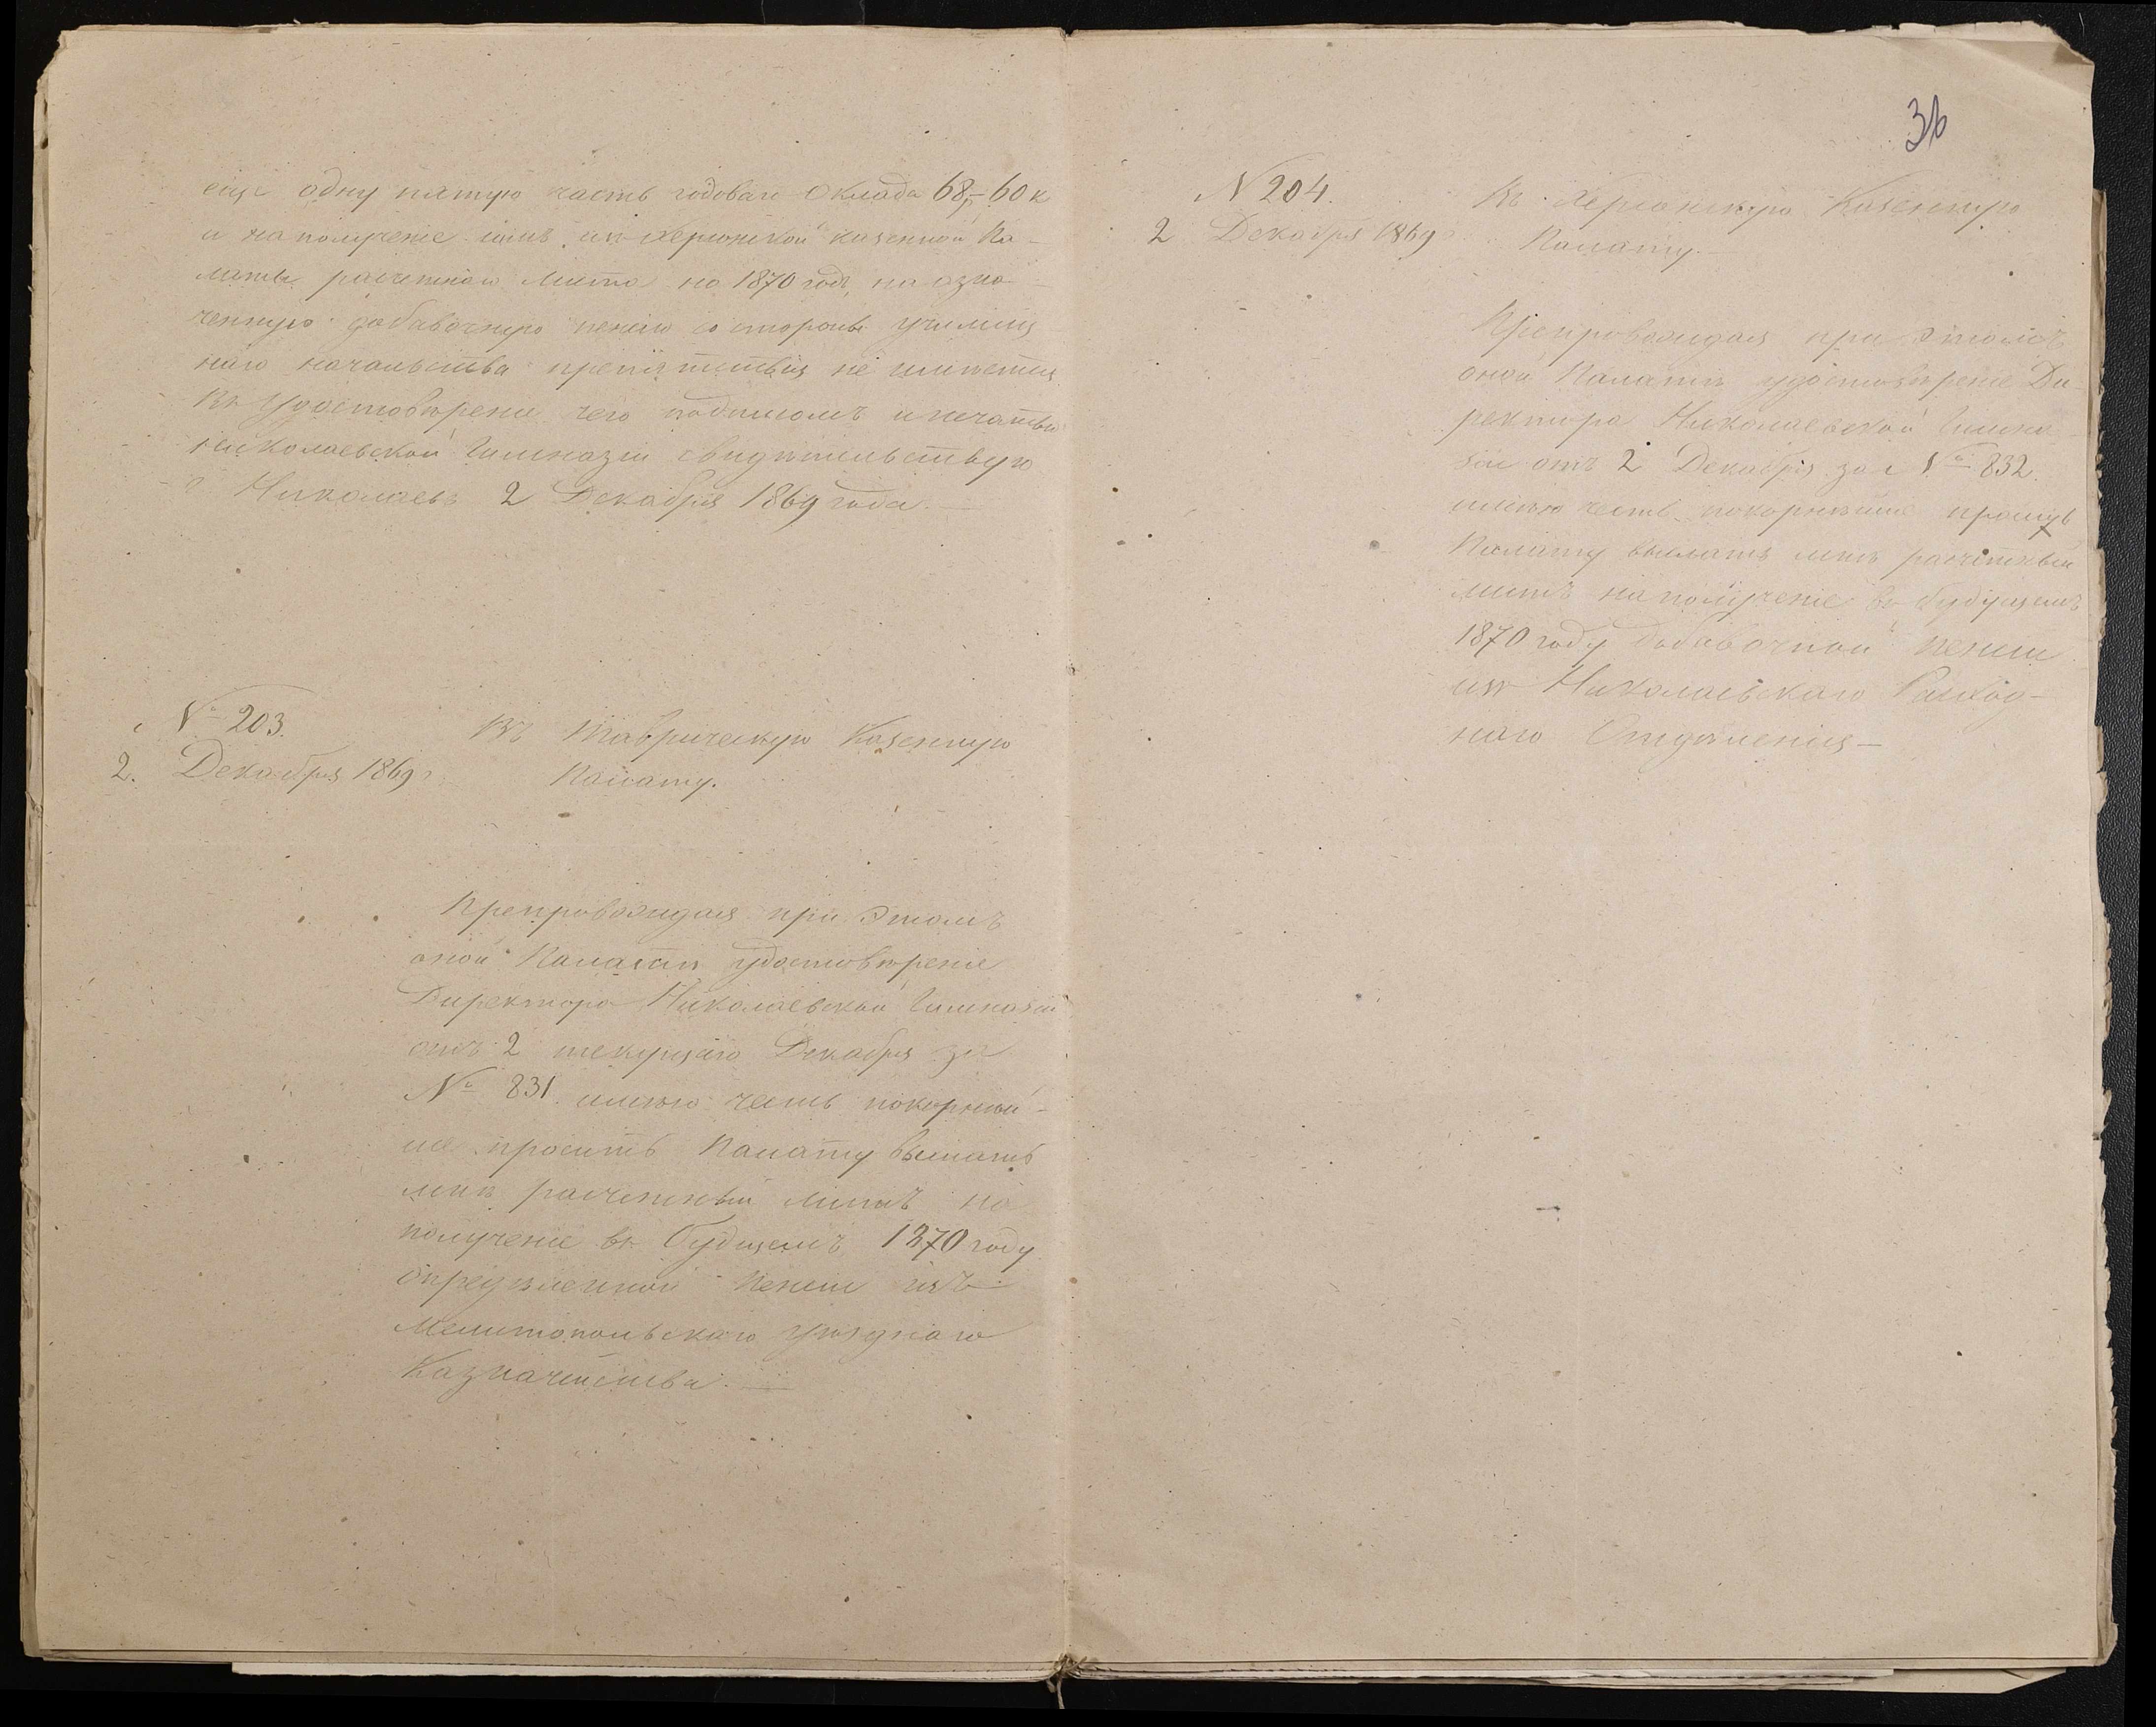 еще одну пятую часть годоваго Оклада 68,–60 к
и на получение имъ изъ Херсонской казенной Па-
латы расчетнаго листа на 1870 годъ, на озна-
ченную добавочную пенсію со стороны училищ
наго начальства препятствія не имѣется
Въ удостовѣреніе чего подписомъ и печатью
Николаевской Гимназіи свидѣтельствую
г Николаевъ 2 Декабря 1869 года. —
№ 203.
2. Декабря 1869 г
Въ Таврическую Казенную
Палату.
Препровождая при Этомъ
оной Палатѣ удостовѣреніе
Директора Николаевской Гимназіи
отъ 2 текущаго Декабря за
№ 831. имѣю честь покорнѣй-
ше просить Палату выслать
мнѣ расчетный листъ на
получение въ будущемъ 1870 году
опредѣленной пенсіи изъ
Мелитопольскаго уѣзднаго
Казначейства. —
36
N 204.
2 Декабря 1869
Въ Херсонскую Казенную
Палату. —
Препровождая при Этомъ
оной Палатѣ удостовѣреніе Ди-
ректора Николаевской Гимна
зіи отъ 2 Декабря за № 832.
имѣю честь покорнѣйше
Палату выслать мнѣ расчетный
листъ на получение въ будущемъ
1870 году добавочной пенсіи
изъ Николаевскаго Расход-
наго Отдѣленія —